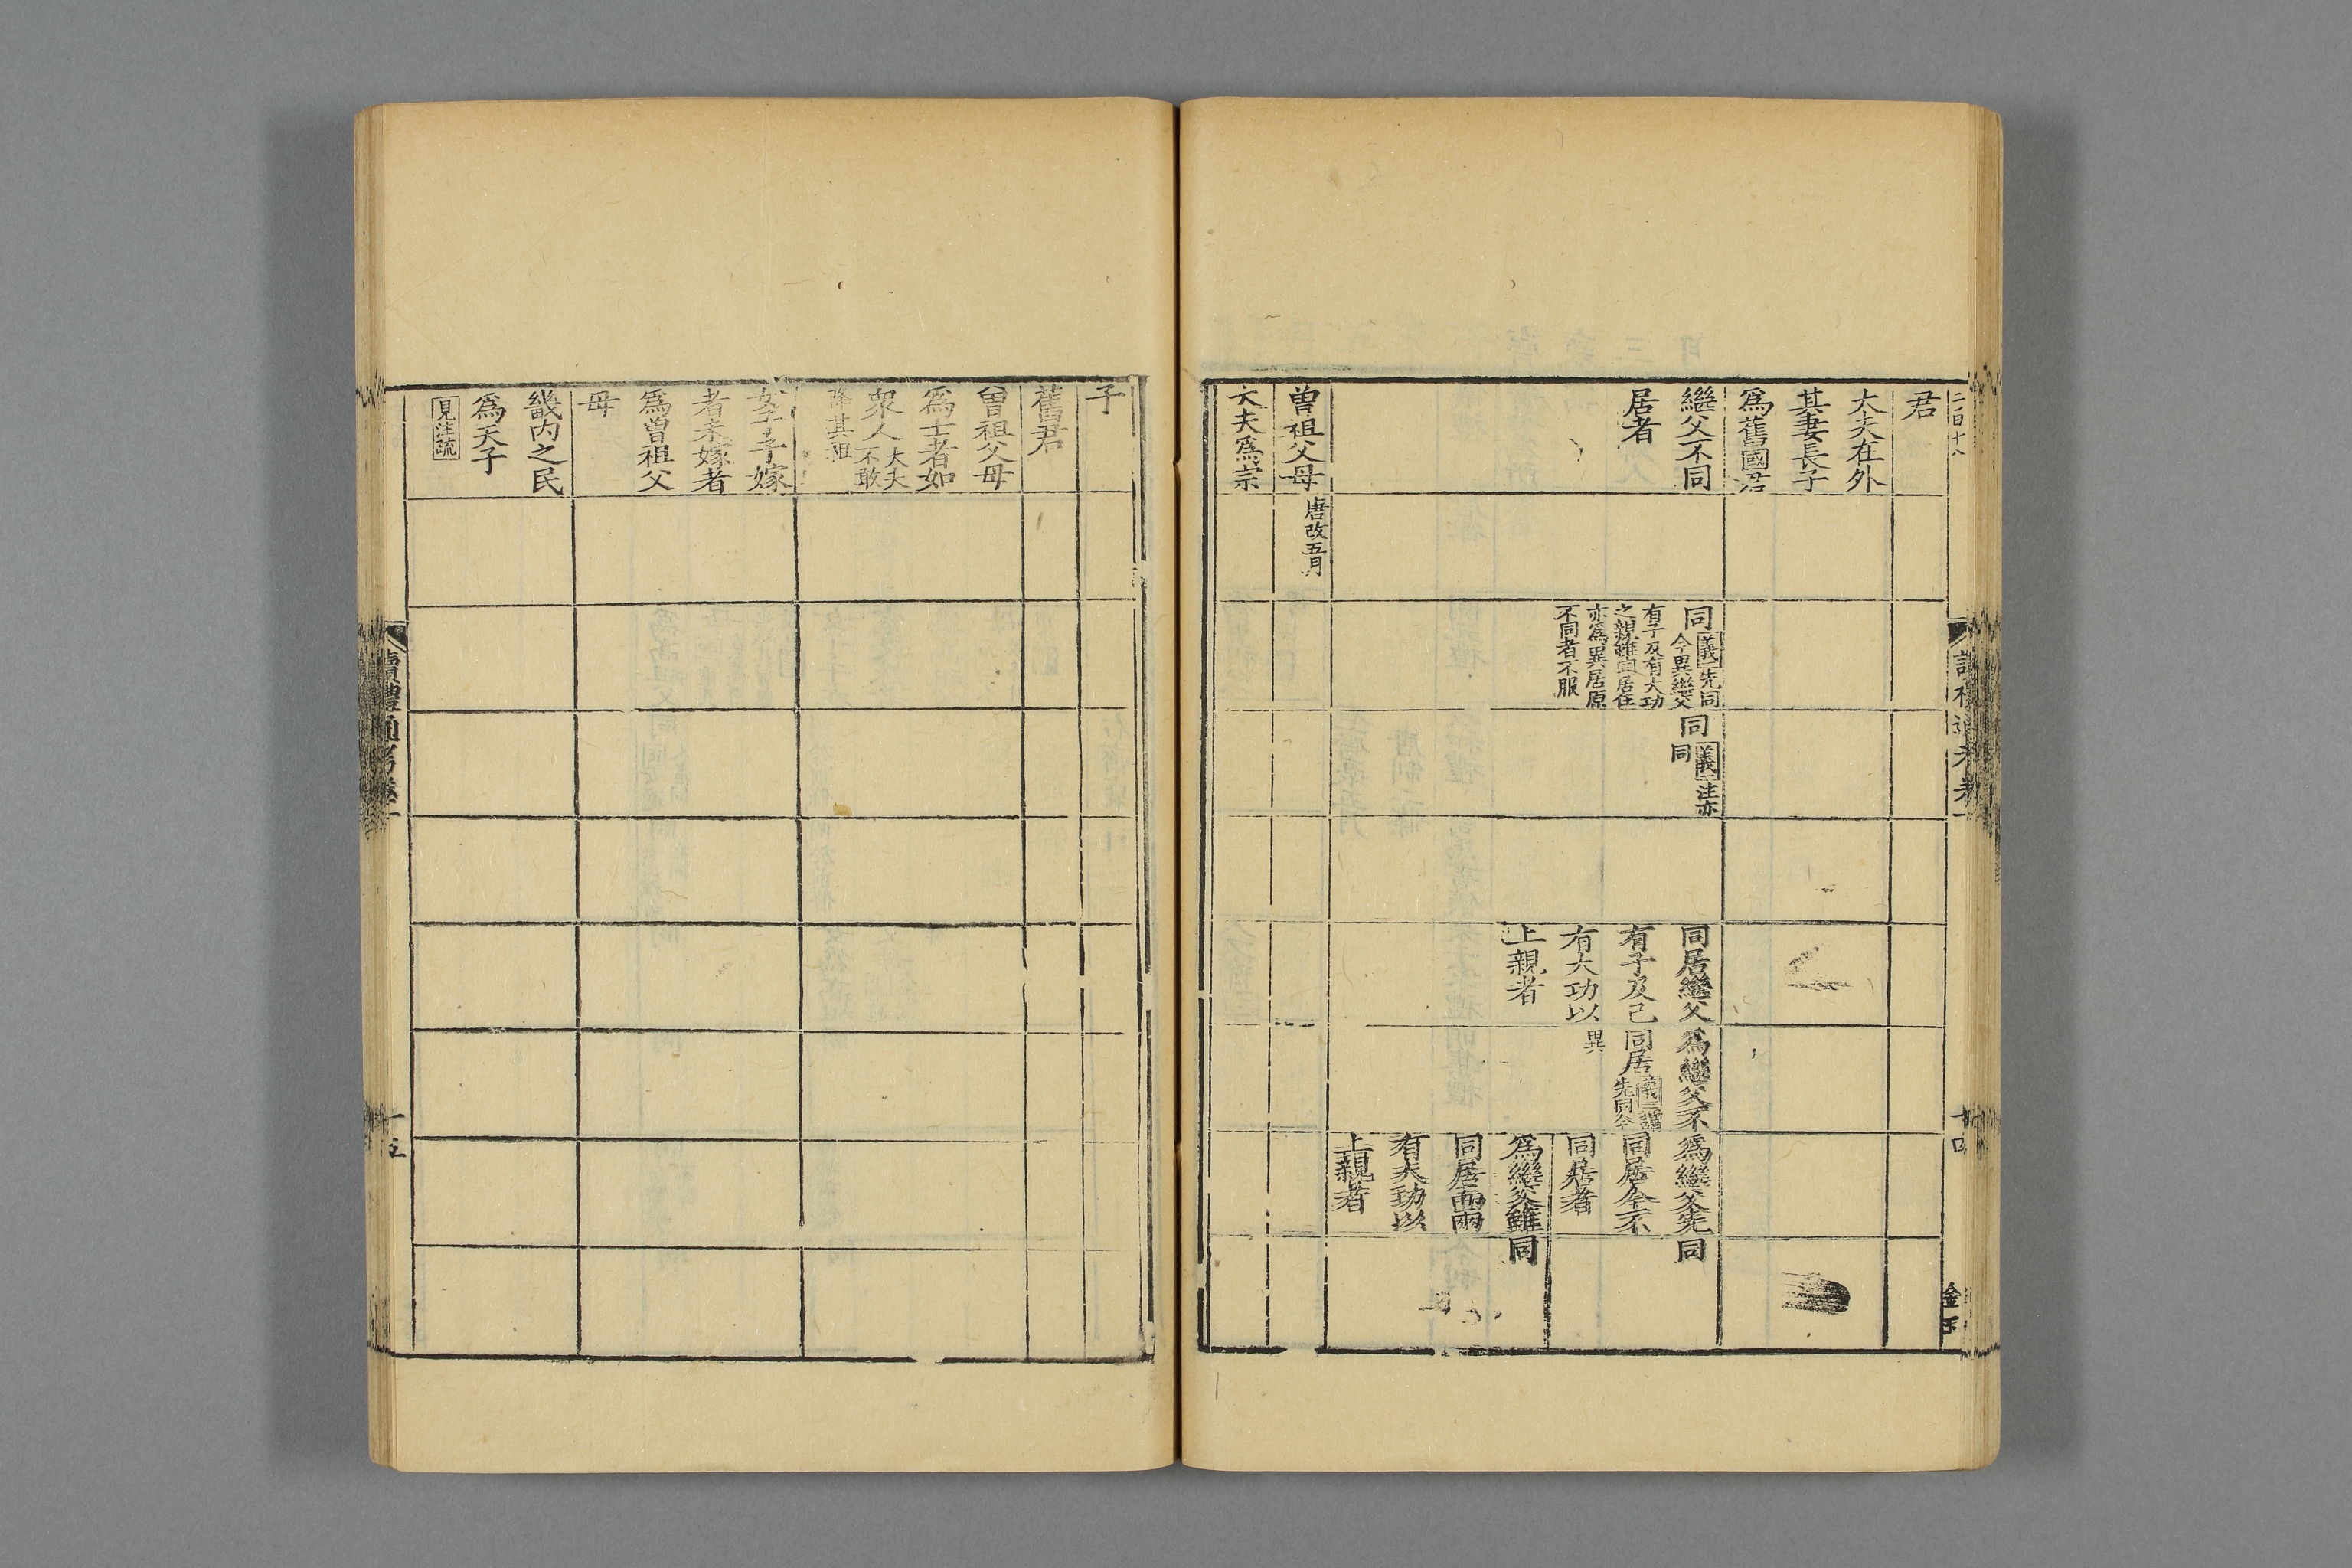 君
大夫在外
其妻長子
爲舊國君
繼父不同
居者
同義先同
今異繼父
有子及有大功
之親雖同居住
亦爲異居原
不同者不服
同義注亦
同
同居繼父
有子及己
有大功以
上親者
爲繼父不
同居
先同今
異
爲繼父先同
同居今不
同居者
爲繼父雖同
同居而兩
有大功以
上親者
曾祖父母
唐改五月
大夫爲宗
讀禮通考卷一
十四
金玉
子
舊君
曾祖父母
爲士者如
衆人大夫
不敢
降其祖
女子子嫁
者未嫁者
爲曾祖父
母
畿內之民
爲天子
見注疏
讀禮通考卷一
十五